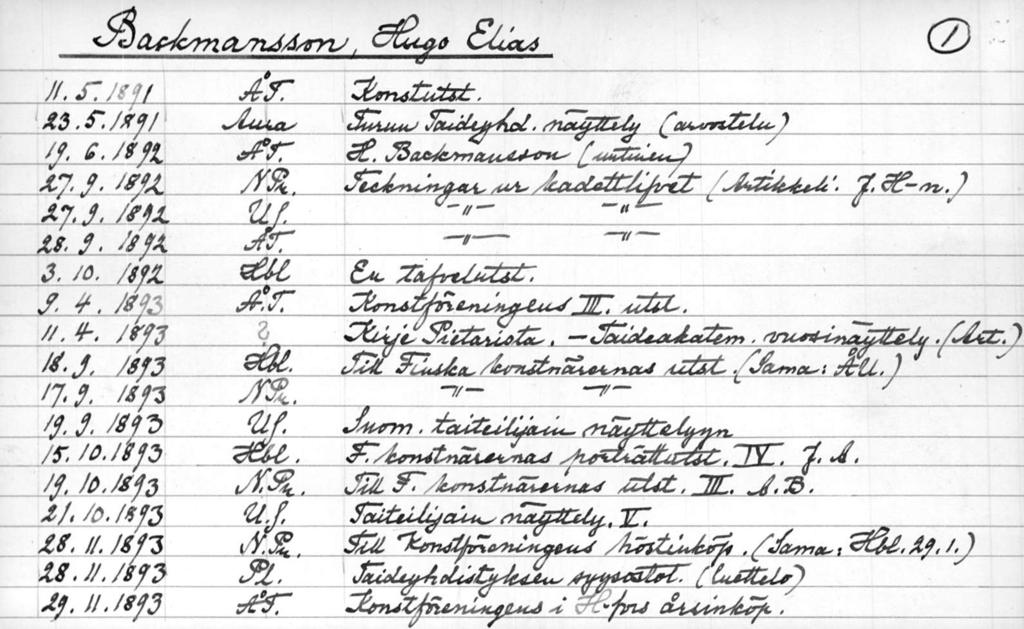 Backmansson, Hugo Elias 1
11.5.1891 ÅT. Konstutst.
23.5.1891 Aura Turun Taideyhd. näyttely (arvostelu)
19.6.1892 ÅT. H. Backmansson (uutinen)
27.9.1892 N.Pr. Teckningar ur kadettlifvet (Artikkeli. J. H-n.)
27.9.1892 U.S. -"- -"-
28.9.1892 ÅT. -"- -"-
3.10.1892 Hbl En tafvelutst.
9.4.1893 Å.T. Konstföreningens III. utst.
11.4.1893 ? Kirje Pietarista. - Taideakatem. vuosinäyttely. (Art.)
18.9.1893 Hbl. Till Finska konstnärernas utst. (Sama: ÅU.)
17.9.1893 N.Pr. -"- -"-
19.9.1893 U.S. Suom. taiteilijain näyttelyyn
15.10.1893 Hbl. F. konstnärernas porträttutst. IV. J. A.
19.10.1893 N.Pr. Till F. konstnärernas utst. III. A.B.
21.10.1893 U.S. Taiteilijain näyttely. V.
28.11.1893 N.Pr. Till Konstföreningens höstinköp. (Sama: Hbl. 29.1.)
28.11.1893 Pl. Taideyhdistyksen syysostot. (luettelo)
29.11.1893 ÅT. Konstföreningens i H-fors årsinköp.